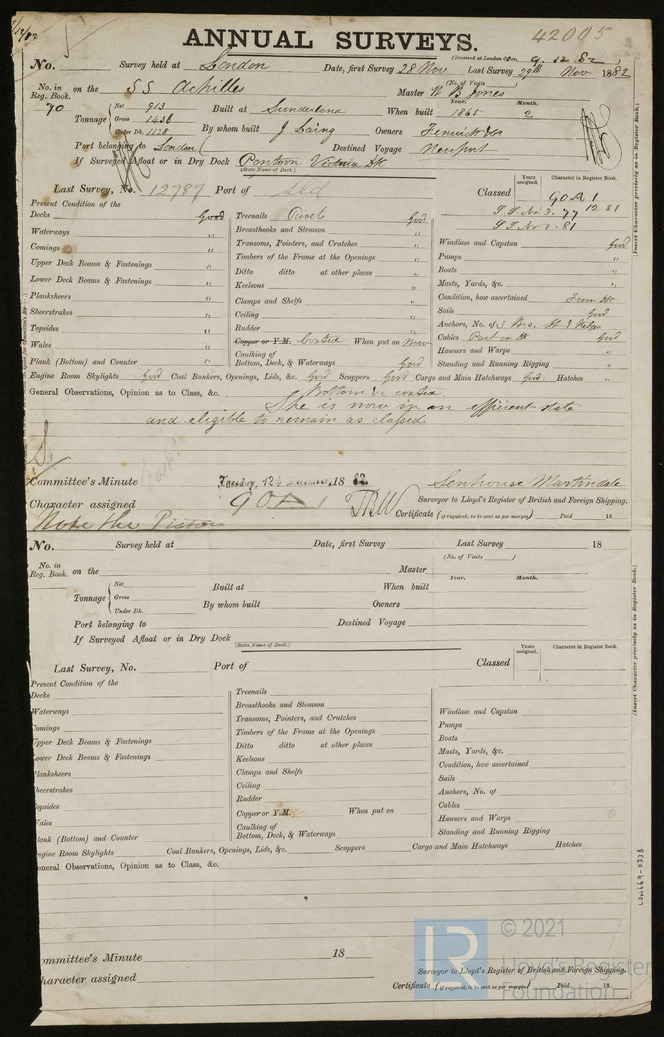 ANNUAL SURVEYS.
42005
(Received at London Office, 9.12.82)
No. Survey held at London Date, first Survey 28 Nov Last Survey 29th Nov 1882
(No. of Visits)
No. in Reg. Book. 70 on the SS Achilles Master W B Jones
Tonnage Net 913 Gross 1438 Under Dk. 1128
Built at Sunderland When built Year. 1865 Month. 2
By whom built J Laing Owners Fenwick & Co
Port belonging to London Destined Voyage Newport
If Surveyed Afloat or in Dry Dock Pontoon Victoria Dk
(State Name of Dock.)
Last Survey, No. 12787 Port of Sld Classed
Years assigned. Character in Register Book.
90 A 1
12.81
S.S. No 3. 77
S.S. No 1. 81
(Insert Character precisely as in Register Book.)
Present Condition of the
Decks Good
Waterways "
Comings "
Upper Deck Beams & Fastenings "
Lower Deck Beams & Fastenings "
Planksheers "
Sheerstrakes "
Topsides "
Wales "
Plank (Bottom) and Counter "
Treenails Rivets Good
Breasthooks and Stemson "
Transoms, Pointers, and Crutches "
Timbers of the Frame at the Openings "
Ditto ditto at other places "
Keelsons "
Clamps and Shelfs "
Ceiling "
Rudder "
Copper or Y.M. Coated When put on Now
Caulking of Bottom, Deck, & Waterways Good
Windlass and Capstan Good
Pumps "
Boats "
Masts, Yards, &c. "
Condition, how ascertained From Dk
Sails Good
Anchors, No. of 3 Brs. St & Kedges
Cables Part on Dk Good
Hawsers and Warps "
Standing and Running Rigging "
Engine Room Skylights Good Coal Bunkers, Openings, Lids, &c. Good Scuppers Good Cargo and Main Hatchways Good Hatches "
General Observations, Opinion as to Class, &c. Bottom &c coated.
She is now in an efficient state
and eligible to remain as classed.
Committee's Minute Tuesday, 12th December, 1882.
Senhouse Martindale
Surveyor to Lloyd's Register of British and Foreign Shipping.
Character assigned 90 A 1
Certificate (if required, to be sent as per margin) Paid 18
Note the Piston
No. Survey held at Date, first Survey Last Survey 18
(No. of Visits)
No. in Reg. Book. on the Master
Year. Month.
Tonnage Net Gross Under Dk.
Built at When built
By whom built Owners
Port belonging to Destined Voyage
If Surveyed Afloat or in Dry Dock
(State Name of Dock.)
Last Survey, No. Port of Classed
Years assigned. Character in Register Book.
(Insert Character precisely as in Register Book.)
Present Condition of the
Decks
Waterways
Comings
Upper Deck Beams & Fastenings
Lower Deck Beams & Fastenings
Planksheers
heerstrakes
opsides
Wales
lank (Bottom) and Counter
Treenails
Breasthooks and Stemson
Transoms, Pointers, and Crutches
Timbers of the Frame at the Openings
Ditto ditto at other places
Keelsons
Clamps and Shelfs
Ceiling
Rudder
Copper or Y.M. When put on
Caulking of Bottom, Deck, & Waterways
Windlass and Capstan
Pumps
Boats
Masts, Yards, &c.
Condition, how ascertained
Sails
Anchors, No. of
Cables
Hawsers and Warps
Standing and Running Rigging
ngine Room Skylights Coal Bunkers, Openings, Lids, &c. Scuppers Cargo and Main Hatchways Hatches
eneral Observations, Opinion as to Class, &c.
LON669-0338
ommittee's Minute 18
Surveyor to Lloyd's Register of British and Foreign Shipping.
haracter assigned
Certificate (if required, to be sent as per margin) Paid 18
LR
© 2021
Lloyd's Register
Foundation